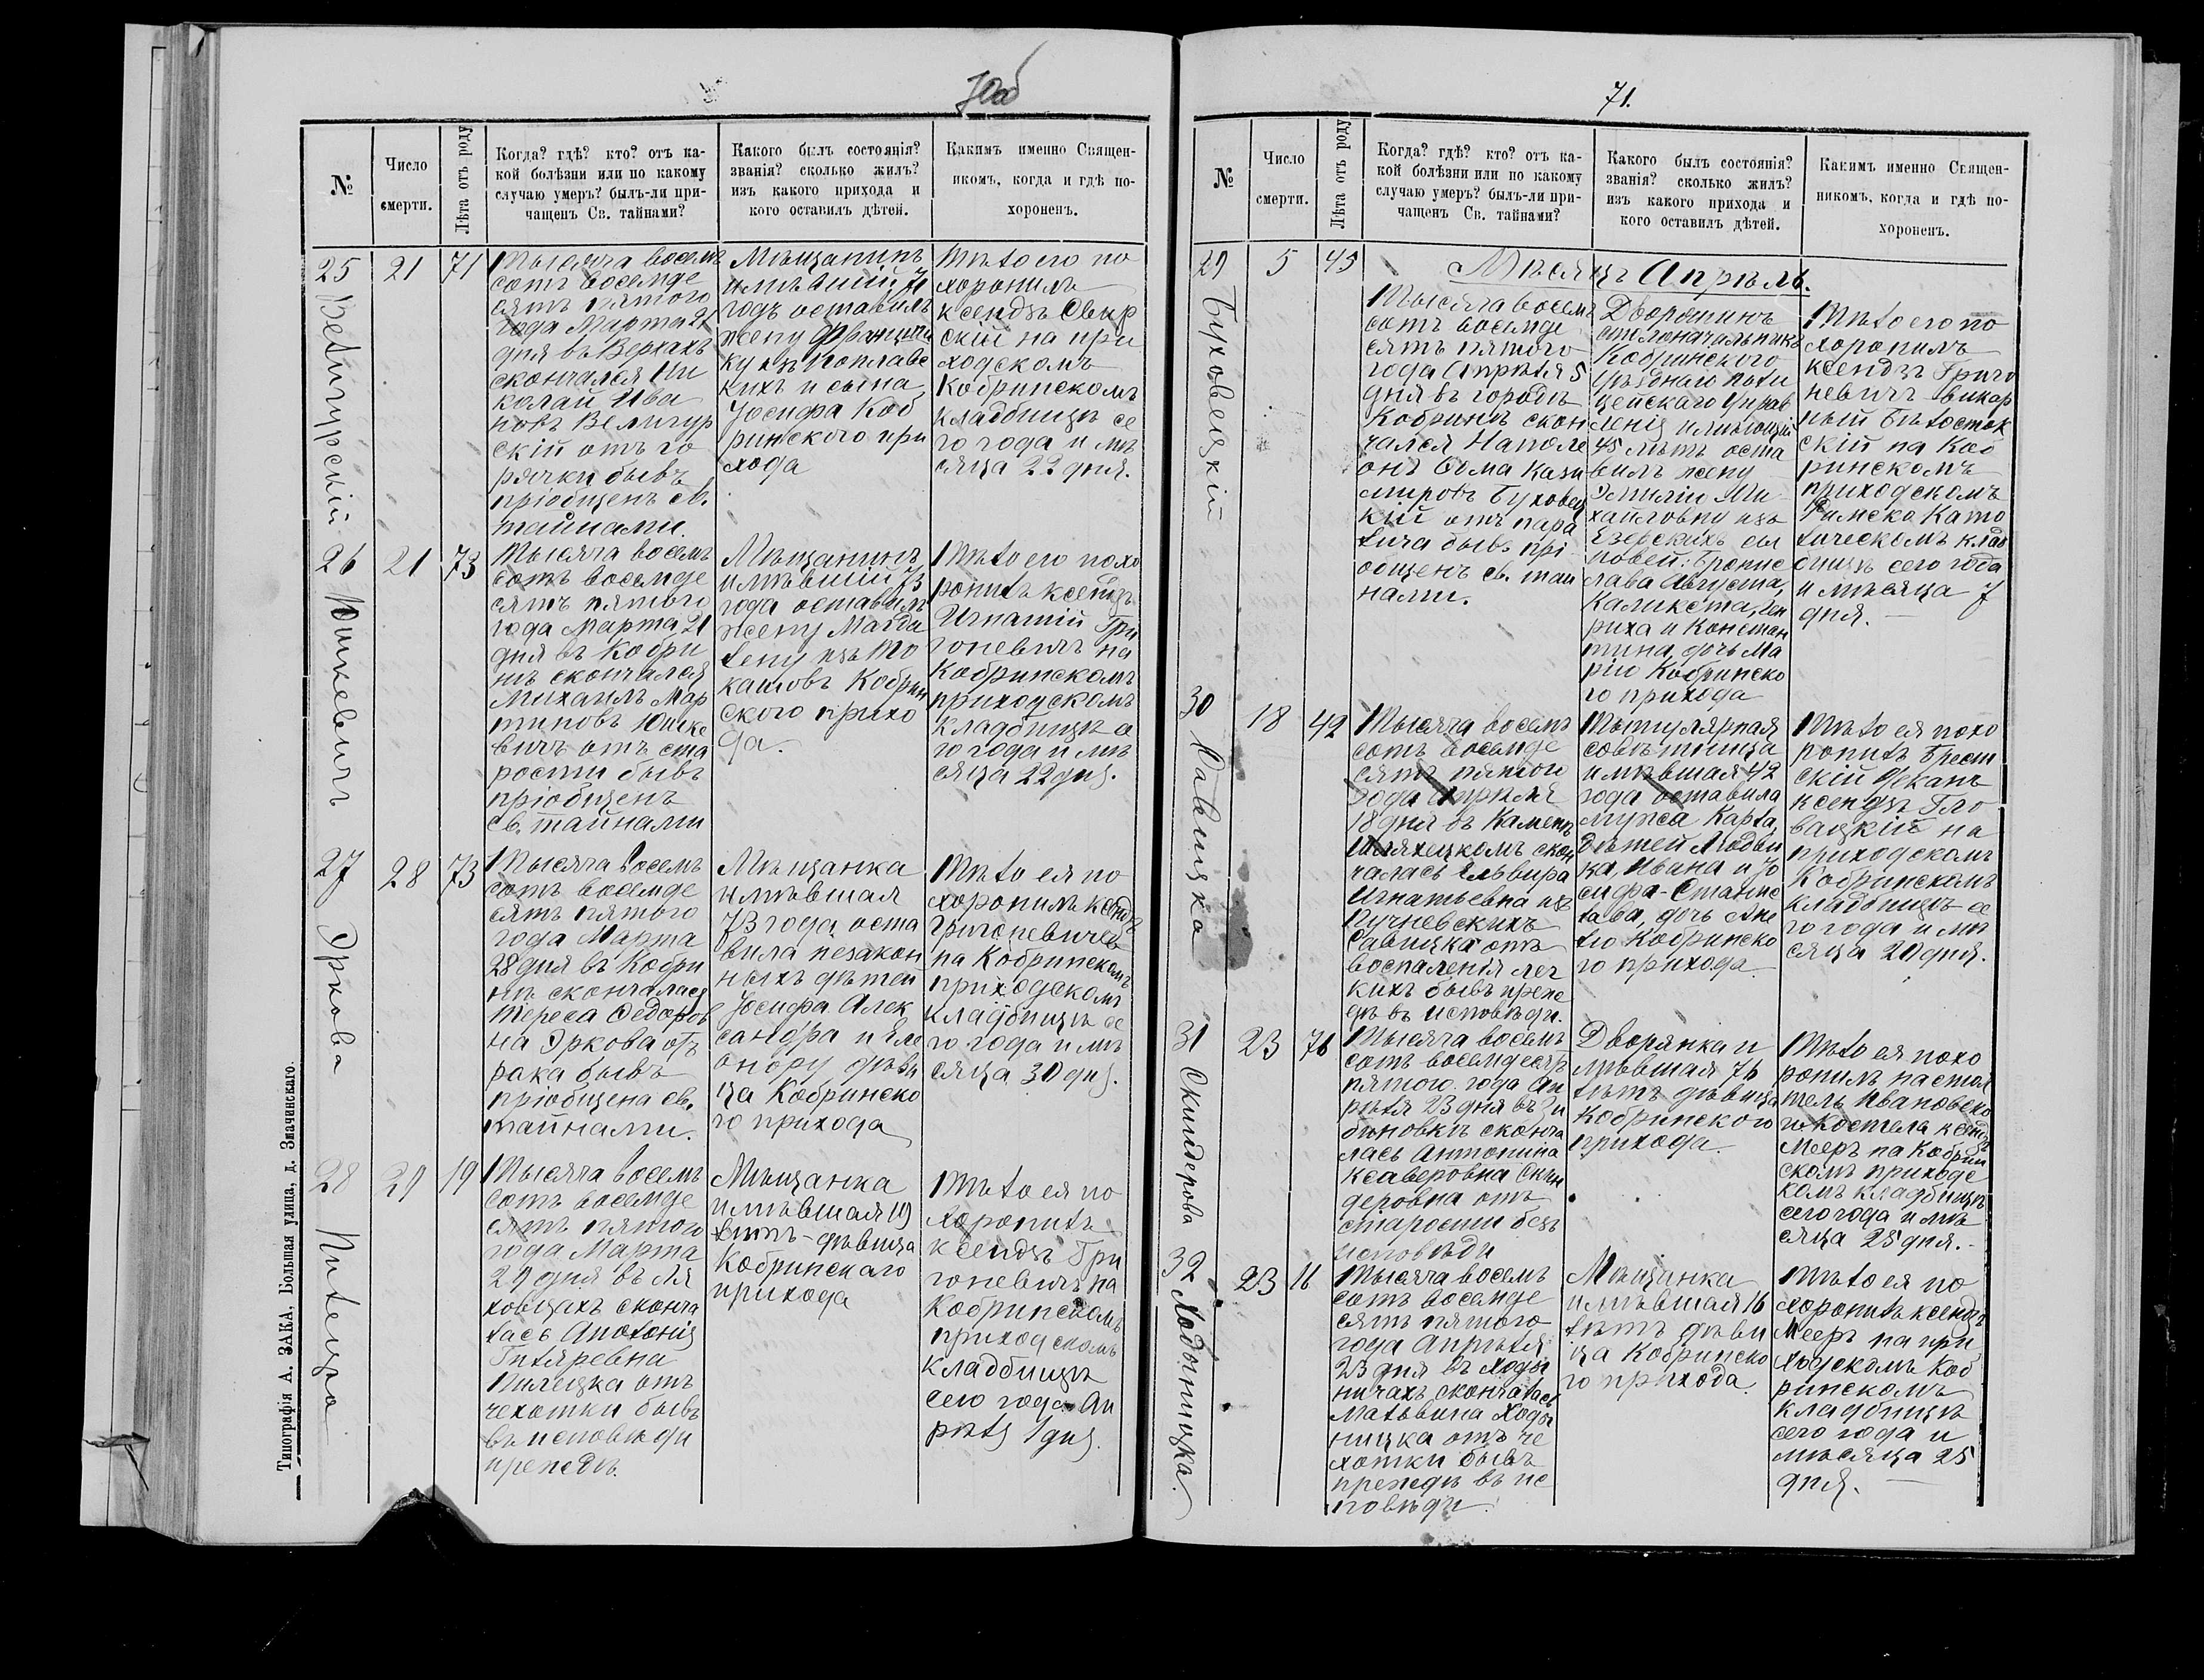 70об
№
Число
смерти.
Лѣта отъ роду
Когда? гдѣ? кто? отъ ка-
кой болѣзни или по какому
случаю умеръ? былъ-ли при-
чащенъ Св. тайнами?
Какого былъ состоянія?
званія? сколько жилъ?
изъ какого прихода и
кого оставилъ дѣтей.
Какимъ именно Священ-
никомъ, когда и гдѣ по-
хороненъ.
25
Велигурскій
21
71
Тысяча восемь
сотъ восемьде
сятъ пятого
года Марта 21
дня въ Верхахъ
скончался Ни
колай Ива
новъ Велигур
скій отъ го
рячки бывъ
пріобщенъ св.
тайнами.
Мѣщанинъ
имѣвшій 71
годъ оставилъ
жену Францишку
изъ Поплавс
кихъ и сына
Іосифа Коб
ринского при
хода
Тѣло его по
хоронилъ
ксендзъ Свир
скій на при
ходскомъ
Кобринскомъ
кладбищѣ се
го года и мѣ
сяца 22 дня.
26
Юшкевичъ
21
73
Тысяча восемь
сотъ восемьде
сятъ пятого
года Марта 21
дня въ Кобри
нѣ скончался
Михаилъ Мар
тиновъ Юшке
вичъ отъ ста
рости бывъ
пріобщенъ
св. тайнами
Мѣщанинъ
имѣвшій 73
года оставилъ
жену Магда
лену изъ То
кашовъ Кобрин
ского прихо
да.
Тѣло его похо
ронилъ ксендзъ
Игнатій Гри
гоневичъ на
Кобринскомъ
приходскомъ
кладбищѣ се
го года и мѣ
сяца 22 дня.
27
Эркова
28
73
Тысяча восемь
сотъ восемьде
сятъ пятого
года Марта
28 дня въ Кобри
нѣ скончалась
Тереса Федоров
на Эркова отъ
рака бывъ
пріобщена св.
тайнами.
Мѣщанка
имѣвшая
73 года оста
вила незакон
ныхъ дѣтей
Іосифа Алек
сандра и Еле
онору дѣви
ца Кобринско
го прихода
Тѣло ея по
хоронилъ ксендзъ
Григоневичъ
на Кобринскомъ
приходскомъ
кладбищѣ се
го года и мѣ
сяца 30 дня.
28
Пилецка
29
19
Тысяча восемь
сотъ восемьде
сятъ пятого
года Марта
29 дня въ Ля
ховцахъ сконча
лась Аполонія
Гиляревна
Пилецка отъ
чехотки бывъ
въ исповѣди
прежде.
Мѣщанка
имѣвшая 19
лѣтъ - дѣвица
Кобринскаго
прихода
Тѣло ея по
хоронилъ
ксендзъ Гри
гоневичъ на
Кобринскомъ
приходскомъ
кладбищѣ
сего года Ап
рѣля 1 дня.
Типографія А. ЗАКА, Большая улица, д. Злачинскаго.
71.
№
Число
смерти.
Лѣта отъ роду
Когда? гдѣ? кто? отъ ка-
кой болѣзни или по какому
случаю умеръ? былъ-ли при-
чащенъ Св. тайнами?
Какого былъ состоянія?
званія? сколько жилъ?
изъ какого прихода и
кого оставилъ дѣтей.
Какимъ именно Священ-
никомъ, когда и гдѣ по-
хороненъ.
Мѣсяцъ Апрѣль.
29
Буховецкій
5
45
Тысяча восемь
сотъ восемьде
сятъ пятого
года Апрѣля 5
дня въ городѣ
Кобринѣ скон
чался Наполе
онъ Фома Кази
мировъ Буховец
кій отъ пара
лича бывъ прі
общенъ св. тай
нами.
Дворянинъ
столоначальникъ
Кобринского
Уѣзднаго поли
цейскаго Управ
ленія имѣющій
45 лѣтъ оста
вилъ жену
Эмилію Ми
хайловну изъ
Езерскихъ сы
новей: Бронис
лава Августа,
Каликста, Ген
риха и Констан
тина, дочь Ма
рію Кобринско
го прихода
Тѣло его по
хоронилъ
ксендзъ Григо
невичъ викар
ный Бѣлосток
скій на Коб
ринскомъ
приходскомъ
Римско Като
лическомъ клад
бищѣ сего года
и мѣсяца 7
дня.
30
Савицка
18
42
Тысяча восемь
сотъ восемьде
сятъ пятого
года Апрѣля
18 дня въ Каменѣ
Шляхецкомъ скон
чалась Ельвира
Игнатьевна изъ
Пучневскихъ
Савицка отъ
воспаленія лег
кихъ бывъ преж
дѣ въ исповѣди.
Титулярная
совѣтница
имѣвшая 42
года оставила
мужа Карла,
дѣтей Людви
ка, Ивана и Іо
сифа-Станис
лава, дочь Ане
лю Кобринско
го прихода
Тѣло ея похо
ронилъ Брест
скій Деканъ
ксендзъ Гло
вацкій на
приходскомъ
Кобринскомъ
кладбищѣ се
го года и мѣ
сяца 20 дня.
31
Скиндерова
23
76
Тысяча восемь
сотъ восемьдесятъ
пятого года Ап
рѣля 23 дня въ Зи
биновкѣ сконча
лась Антонина
Ксаверовна Скин
деровна отъ
старости безъ
исповѣди
Дворянка и
мѣвшая 76
лѣтъ дѣвица
Кобринского
прихода.
Тѣло ея похо
ронилъ настоя
тель Ивановско
го Костела ксендзъ
Мееръ на Кобрин
скомъ приходс
комъ кладбищѣ
сего года и мѣ
сяца 25 дня.
32
Ходыницка.
23
16
Тысяча восемь
сотъ восемьде
сятъ пятого
года Апрѣля
23 дня въ Ходы
ничахъ скончалась
Мальвина Ходы
ницка отъ че
хотки бывъ
прежде въ ис
повѣди.
Мѣщанка
имѣвшая 16
лѣтъ дѣви
ца Кобринско
го прихода.
Тѣло ея по
хоронилъ ксендзъ
Мееръ на при
ходскомъ Коб
ринскомъ
кладбищѣ
сего года и
мѣсяца 25
дня.